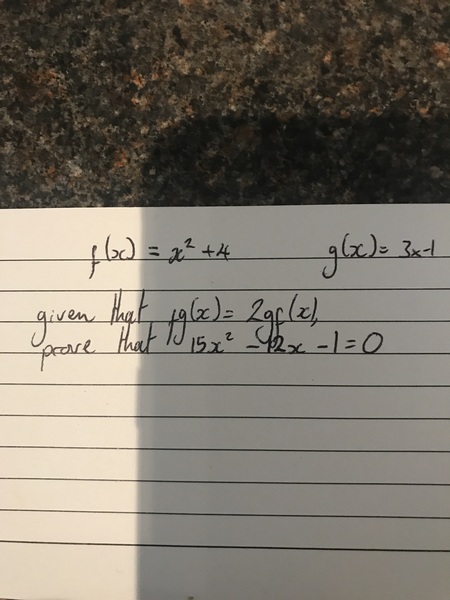 f(x) = x² + 4 g(x) = 3x-1
given that fg(x) = 2gf(x),
prove that 15x² - 12x - 1 = 0